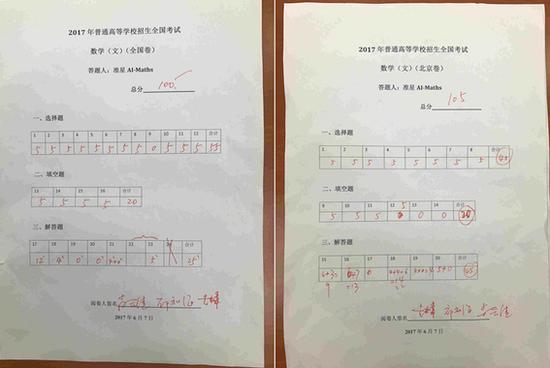 2017 年普通高等学校招生全国考试
数学（文）（全国卷）
答题人：准星 AI-Maths
总分 100
一、选择题
1 2 3 4 5 6 7 8 9 10 11 12 合计
5 5 5 5 5 5 5 5 0 5 5 5 55
二、填空题
13 14 15 16 合计
5 5 5 5 20
三、解答题
17 18 19 20 21 22 23 合计
12 4 0 0 5 25
阅卷人签名
2017 年 6 月 7 日
2017 年普通高等学校招生全国考试
数学（文）（北京卷）
答题人：准星 AI-Maths
总分 105
一、选择题
1 2 3 4 5 6 7 8 合计
5 5 5 5 5 5 5 5 40
二、填空题
9 10 11 12 13 14 合计
5 5 5 5 0 0 20
三、解答题
15 16 17 18 19 20 合计
9 =13 0
阅卷人签名
2017 年 6 月 7 日